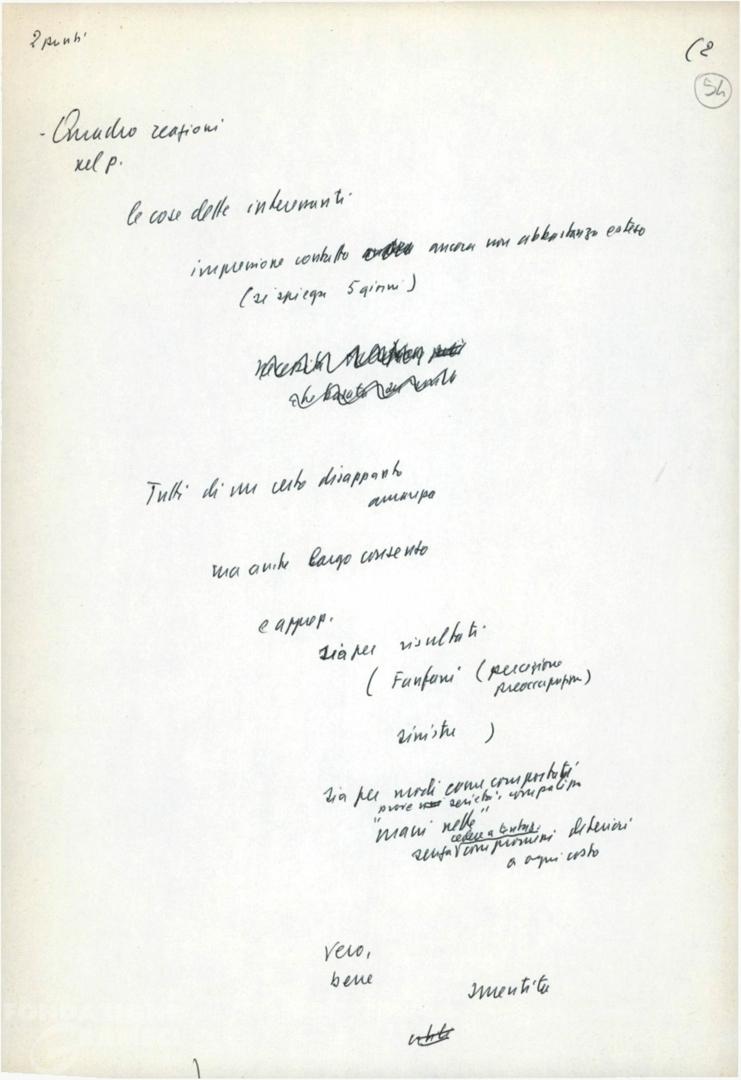 2 punti
(2
54
- Quadro reazioni
nel p.
le cose dette interessanti
impressione contatto ancora non abbastanza esteso
(si spiega 5 giorni)
Tutti di un certo disappunto
amarezza
ma anche largo consenso
e apprez.
sia per risultati
( Fanfani ( percezione
preoccupazione )
sinistre )
sia per modi come comportati
prove serietà, compattezza
"mani nette"
cedere a
senza compromessi deteriori
a ogni costo
Vero,
bene
smentite